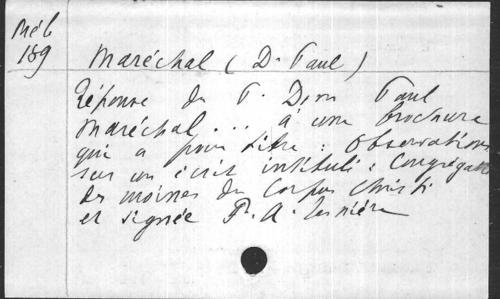 Méb
189
Maréchal (D. Paul)
Réponse du P. Dom Paul
Maréchal... à une brochure
qui a pour titre : Observations
sur un écrit intitulé : Congrégation
des moines du Corpus Christi
et signée P. A.